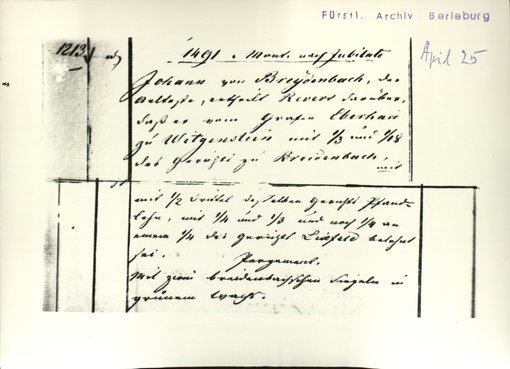 Fürstl. Archiv Berleburg
April 25
1213.
1491. Mont. nach Jubilate
Johann von Breydenbach, der
Aelteste, ertheilt Revers darüber,
daß er vom Grafen Eberhard
zu Witgenstein mit 1/3 und 1/18
des Gerichts zu Breidenbach,
mit
mit 1/2 Drittel desselben Gerichts Pfand-
lehn, mit 1/4 und 1/3 und noch 1/4 an
einem 1/4 des Gerichts Lixfeld belehnt
sei. Pergament.
Mit zwei breidenbachschen Siegeln in
grünem Wachs.